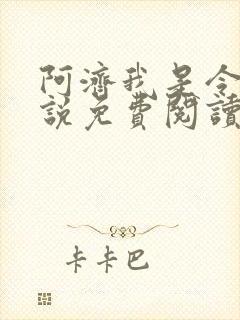 阿濟我是令
說免費閱讀
卡卡巴